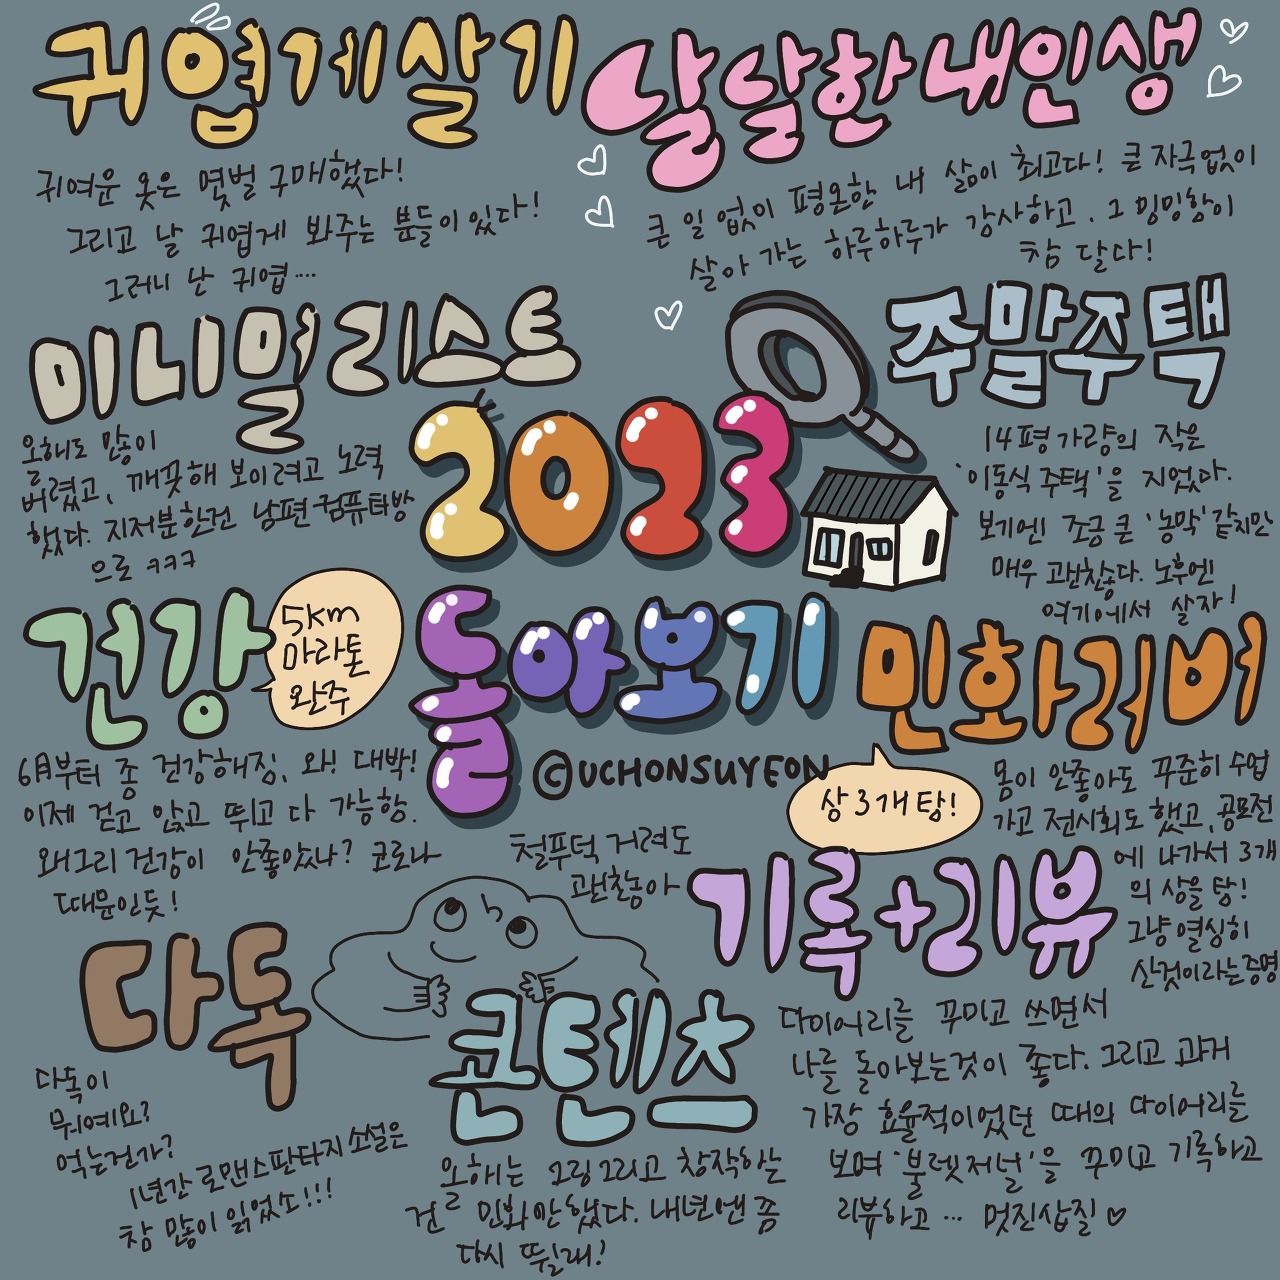 귀엽게살기
귀여운 옷은 몇벌 구매했다!
그리고 날 귀엽게 봐주는 분들이 있다!
그러니 난 귀엽....
달달한내인생
큰 일 없이 평온한 내 삶이 최고다! 큰 자극없이
살아 가는 하루하루가 감사하고. 그 밍밍함이
참 달다!
미니멀리스트
올해도 많이
버렸고, 깨끗해 보이려고 노력
했다. 지저분한건 남편컴퓨터방
으로 ㅋㅋㅋ
2023
돌아보기
©UCHONSUYEON
주말주택
14평 가량의 작은
'이동식 주택'을 지었다.
보기엔 조금 큰 '농막' 같지만
매우 괜찮다. 노후엔
여기에서 살자!
건강
5km
마라톤
완주
6月부터 좀 건강해짐. 와! 대박!
이제 걷고 앉고 뛰고 다 가능함.
왜그리 건강이 안좋았나? 코로나
때문인듯!
민화러버
상 3개 탐!
몸이 안좋아도 꾸준히 수업
가고 전시회도 했고, 공모전
에 나가서 3개
의 상을 탐!
그냥 열심히
산것이라는증명
철푸덕 거려도
괜찮아
다독
다독이
뭐예요?
먹는건가?
1년간 로맨스판타지소설은
참 많이 읽었소!!!
콘텐츠
올해는 그림그리고 창작하는
건 민화만했다. 내년엔 좀
다시 뛸래!
기록+리뷰
다이어리를 꾸미고 쓰면서
나를 돌아보는것이 좋다. 그리고 과거
가장 효율적이었던 때의 다이어리를
보며 '불렛저널'을 꾸미고 기록하고
리뷰하고 ... 멋진삽질♡